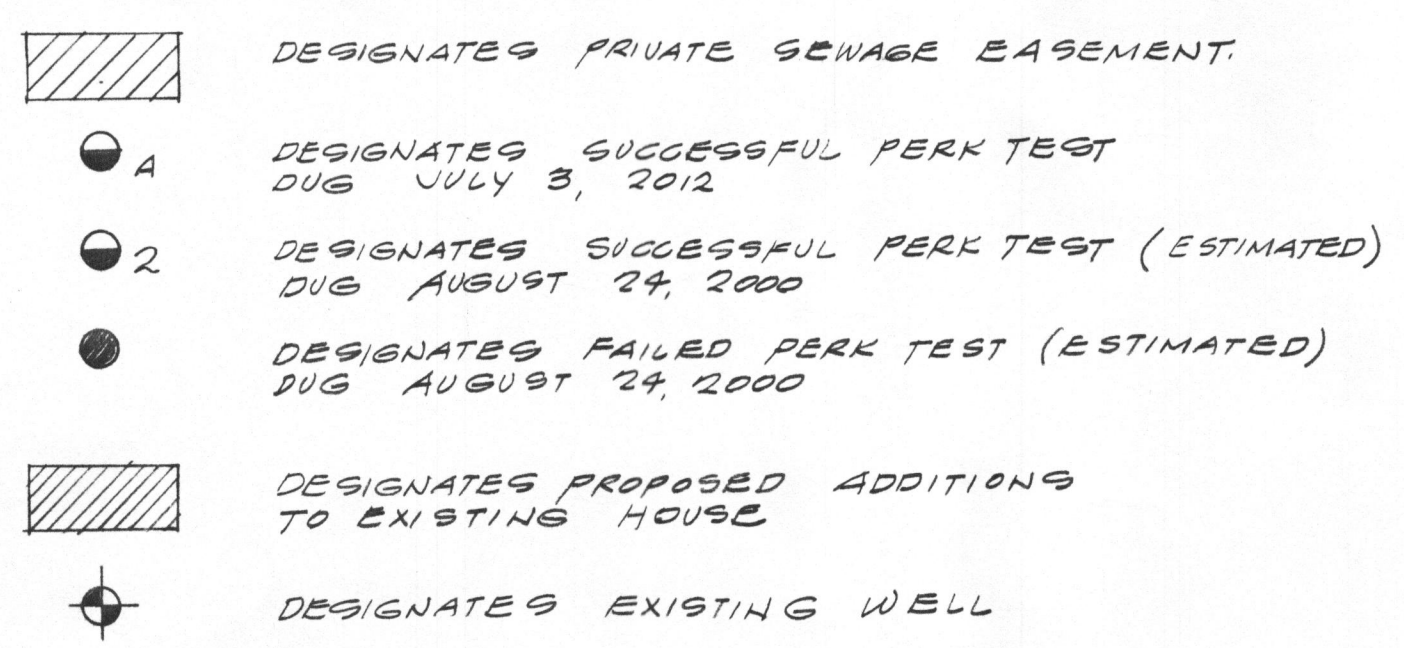 DESIGNATES PRIVATE SEWAGE EASEMENT.
A DESIGNATES SUCCESSFUL PERK TEST
DUG JULY 3, 2012
2 DESIGNATES SUCCESSFUL PERK TEST (ESTIMATED)
DUG AUGUST 24, 2000
DESIGNATES FAILED PERK TEST (ESTIMATED)
DUG AUGUST 24, 2000
DESIGNATES PROPOSED ADDITIONS
TO EXISTING HOUSE
DESIGNATES EXISTING WELL